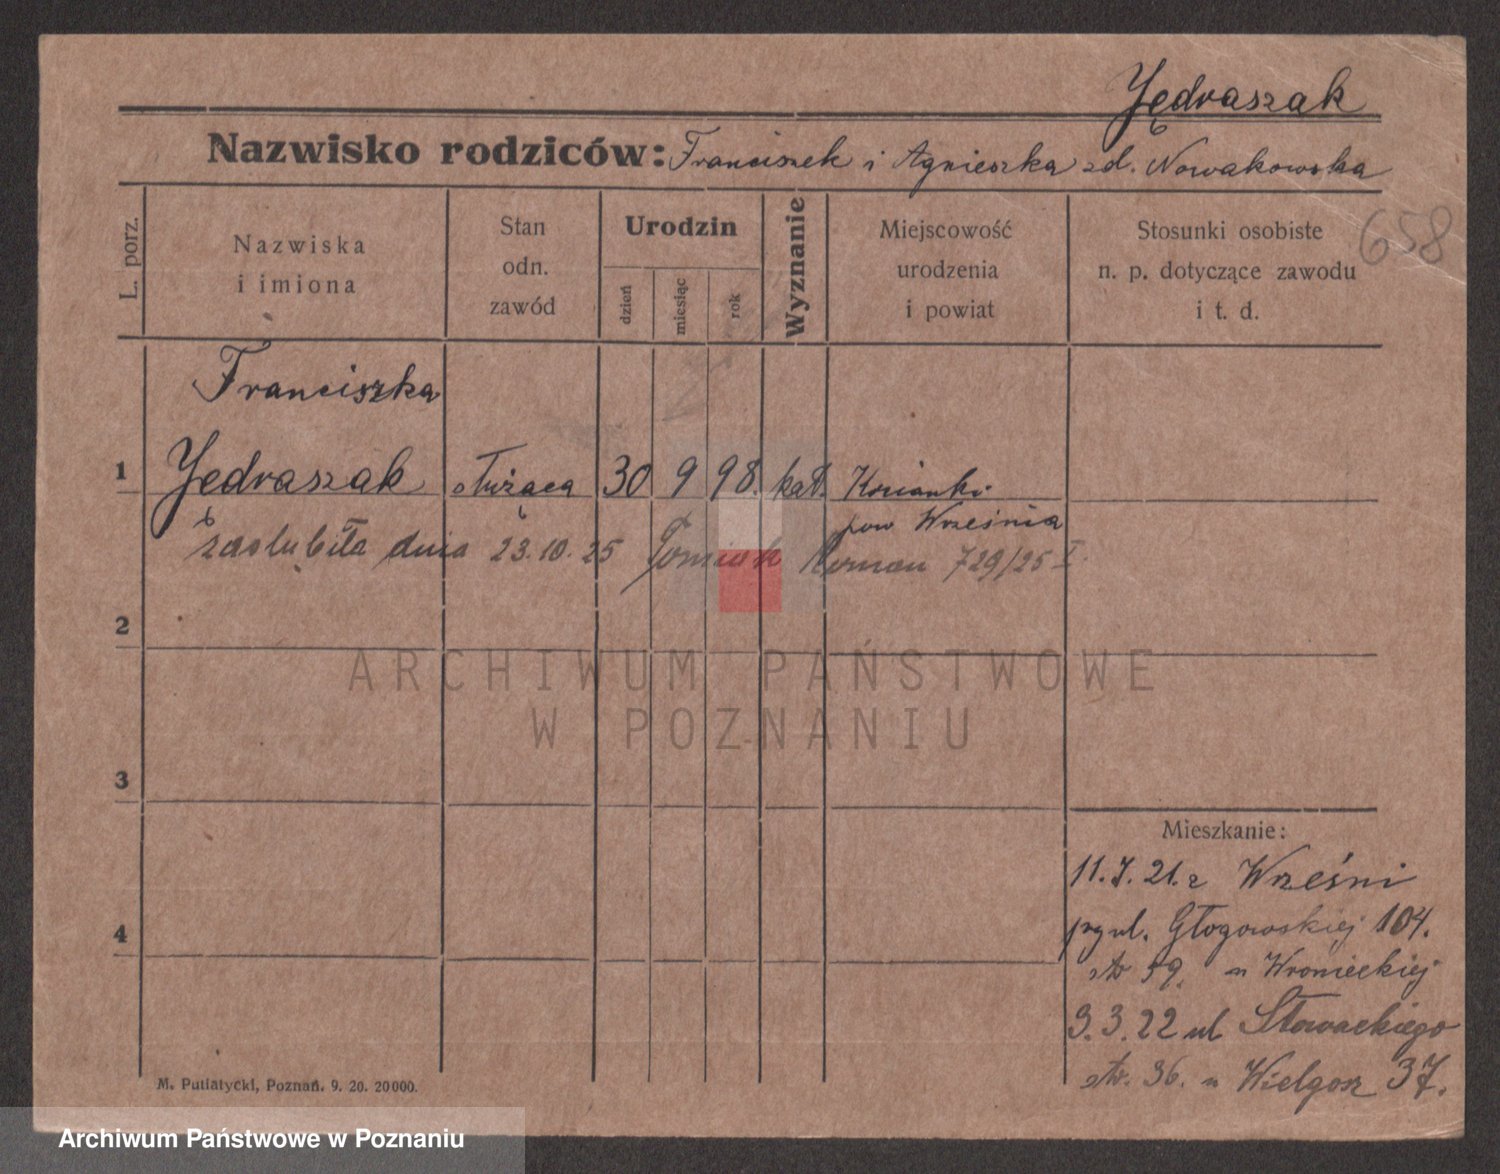 Jędraszak
Nazwisko rodziców: Franciszek i Agnieszka zd. Nowakowska
658
L. porz.
Nazwiska
i imiona
Stan
odn.
zawód
Urodzin
dzień
miesiąc
rok
Wyznanie
Miejscowość
urodzenia
i powiat
Stosunki osobiste
n. p. dotyczące zawodu
i t. d.
Franciszka
1 Jędraszak służąca 30 9 98. kat.
pow Września
zaślubiła dnia 23.10.25 Tomiak Roman 729/25 I.
2
3
4
Mieszkanie:
11.7.21. z Wrześni
ul. Głogowskiej 104.
59. u Wronieckiej
9.3.22 ul Słowackiego
36. u Wielgosz 37.
M. Putiatycki, Poznań. 9. 20. 20000.
ARCHIWUM PAŃSTWOWE
W POZNANIU
Archiwum Państwowe w Poznaniu